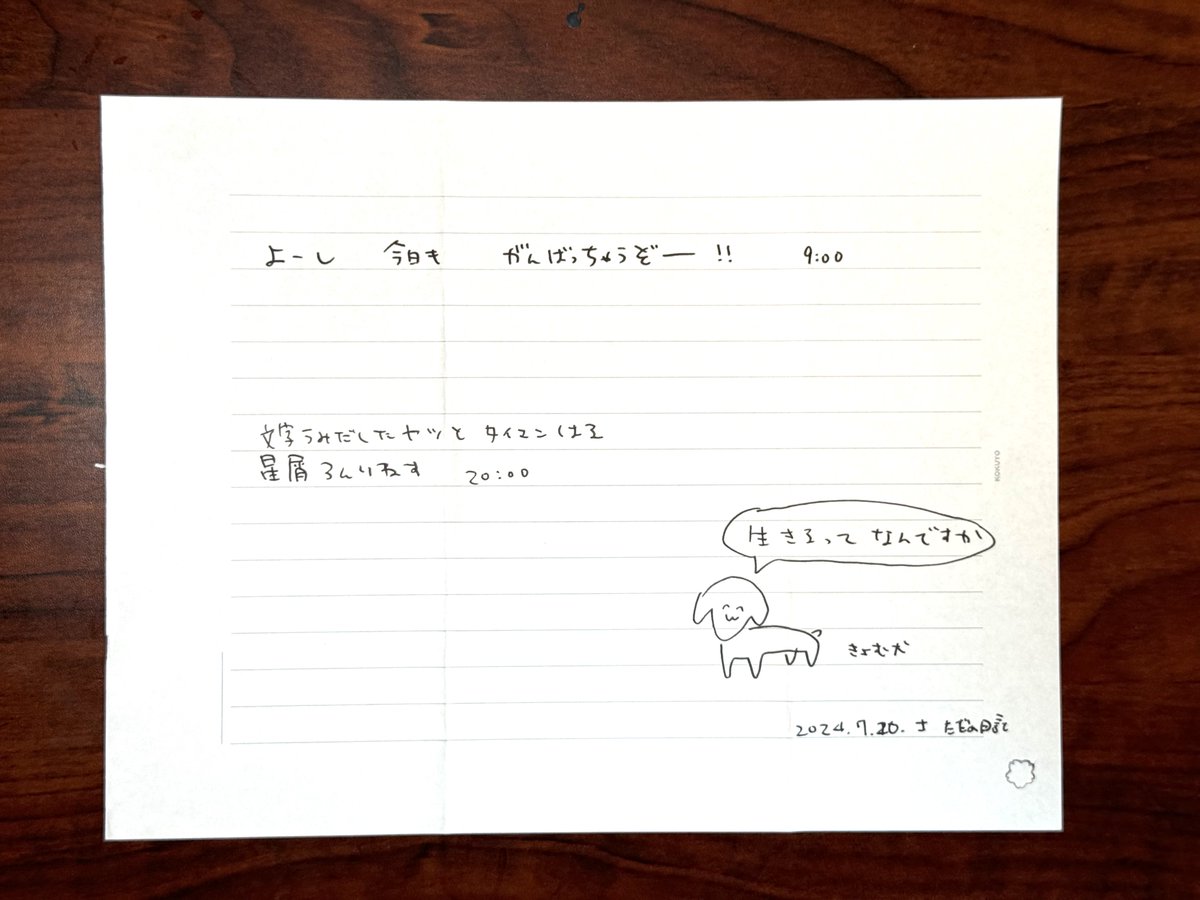 よーし 今日も がんばっちゃうぞー!! 9:00
文字うみだしたヤツとタイマンはる
星屑ろんりねす 20:00
KOKUYO
生きるって なんですか
きょむ犬
2024.7.20. さ ただの日記